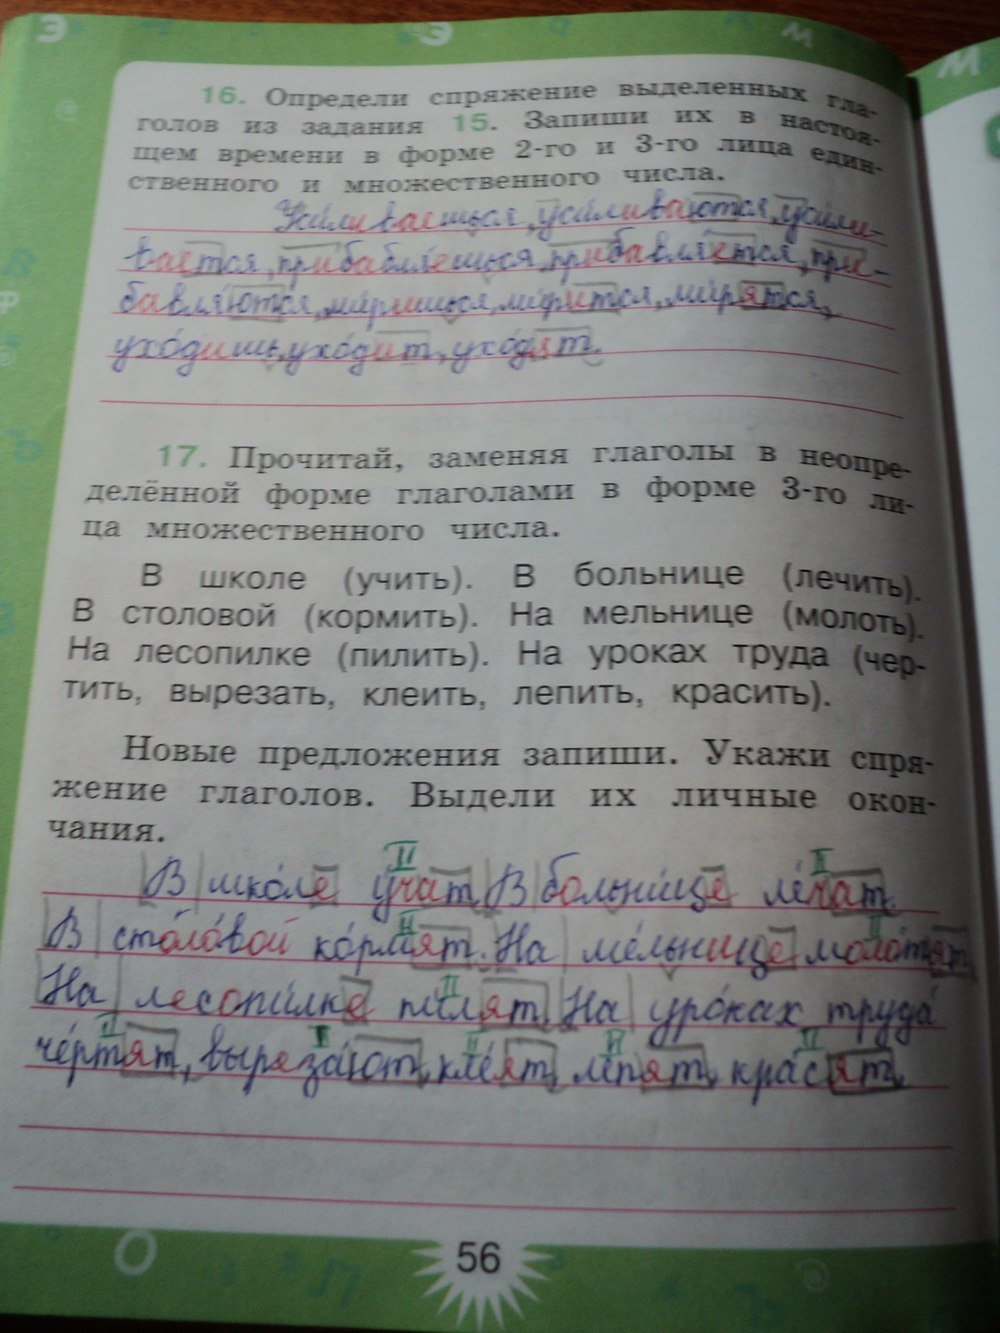 Э Э М М
16. Определи спряжение выделенных гла-
голов из задания 15. Запиши их в настоя-
щем времени в форме 2-го и 3-го лица един-
ственного и множественного числа.
Уси́ливаешься, уси́ливаются, уси́ли-
вается, прибавля́ешься, прибавля́ется, при-
бавля́ются, ми́ришься, ми́рится, ми́рятся,
ухо́дишь, ухо́дит, ухо́дят.
17. Прочитай, заменяя глаголы в неопре-
делённой форме глаголами в форме 3-го ли-
ца множественного числа.
В школе (учить). В больнице (лечить).
В столовой (кормить). На мельнице (молоть).
На лесопилке (пилить). На уроках труда (чер-
тить, вырезать, клеить, лепить, красить).
Новые предложения запиши. Укажи спря-
жение глаголов. Выдели их личные окон-
чания.
II II
В шко́ле у́чат. В больни́це ле́чат.
II II
В столо́вой ко́рмят. На ме́льнице моло́тят.
II
На лесопи́лке пи́лят. На уро́ках труда́
II I II II II
че́ртят, выреза́ют, кле́ят, ле́пят, кра́сят.
О П
56